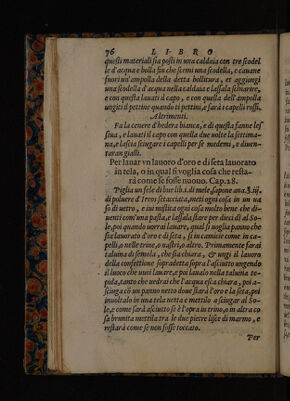 76 LIBRO
questi materiali sia posti in una caldaia con tre scodel
le d'acqua e bolla fin che scemi una scodella, e cavane
fuori un'ampolla della detta bollitura, et aggiungi
una scodella d'acqua nella caldaia e lassala schiarire,
e con questa lavati il capo, e con quella dell'ampolla
ungiti il pettine quando ti pettini, e sarà i capelli rossi.
Altrimenti.
Fa la cenere d'hedera bianca, e di questa fanne les
siva, e lavati il capo con quella due volte la settima-
na, e lascia sciugare i capelli per se medemi, e diuen-
taran gialli.
Per lauar vn lauoro d'oro e di seta lauorato
in tela, o in qual si voglia cosa che resta-
rà come se fosse nuouo. Cap. 28.
Piglia un fele di bue lib.i. di mele, sapone ana. 3. iij.
di poluere d'Ireos setacciata, meti ogni cosa in un ua
so di uetro, e iui mistica ogni cosa molto bene che di-
uenti com'una pasta, e lassala stare per dieci dì al So-
le, poi quando uorrai lauare, qual si uoglia panno che
sia lauorato d'oro e di seta, si in camicie come in ca-
pelli, o nelle trine, o nastri, o altro. Primamente farai
taluina di semola, che sia chiara, & ungi il lauoro
della confettione sopradetta sopra l'asciutto ungendo
il luoco che uuoi lauare, e poi laualo nella taluina te-
pida, tanto che uedrai che l'acqua esca chiara, poi a-
sciuga cõ un panno netto doue starà l'oro e la seta, poi
inuoltalo in una tela netta e mettilo a sciugar al So-
le, e come sarà asciutto se è l'opra in trino, o in altra co
sa brunita mettila tra le due pietre lisce di marmo, e
restarà come se non fosse toccato.
Per